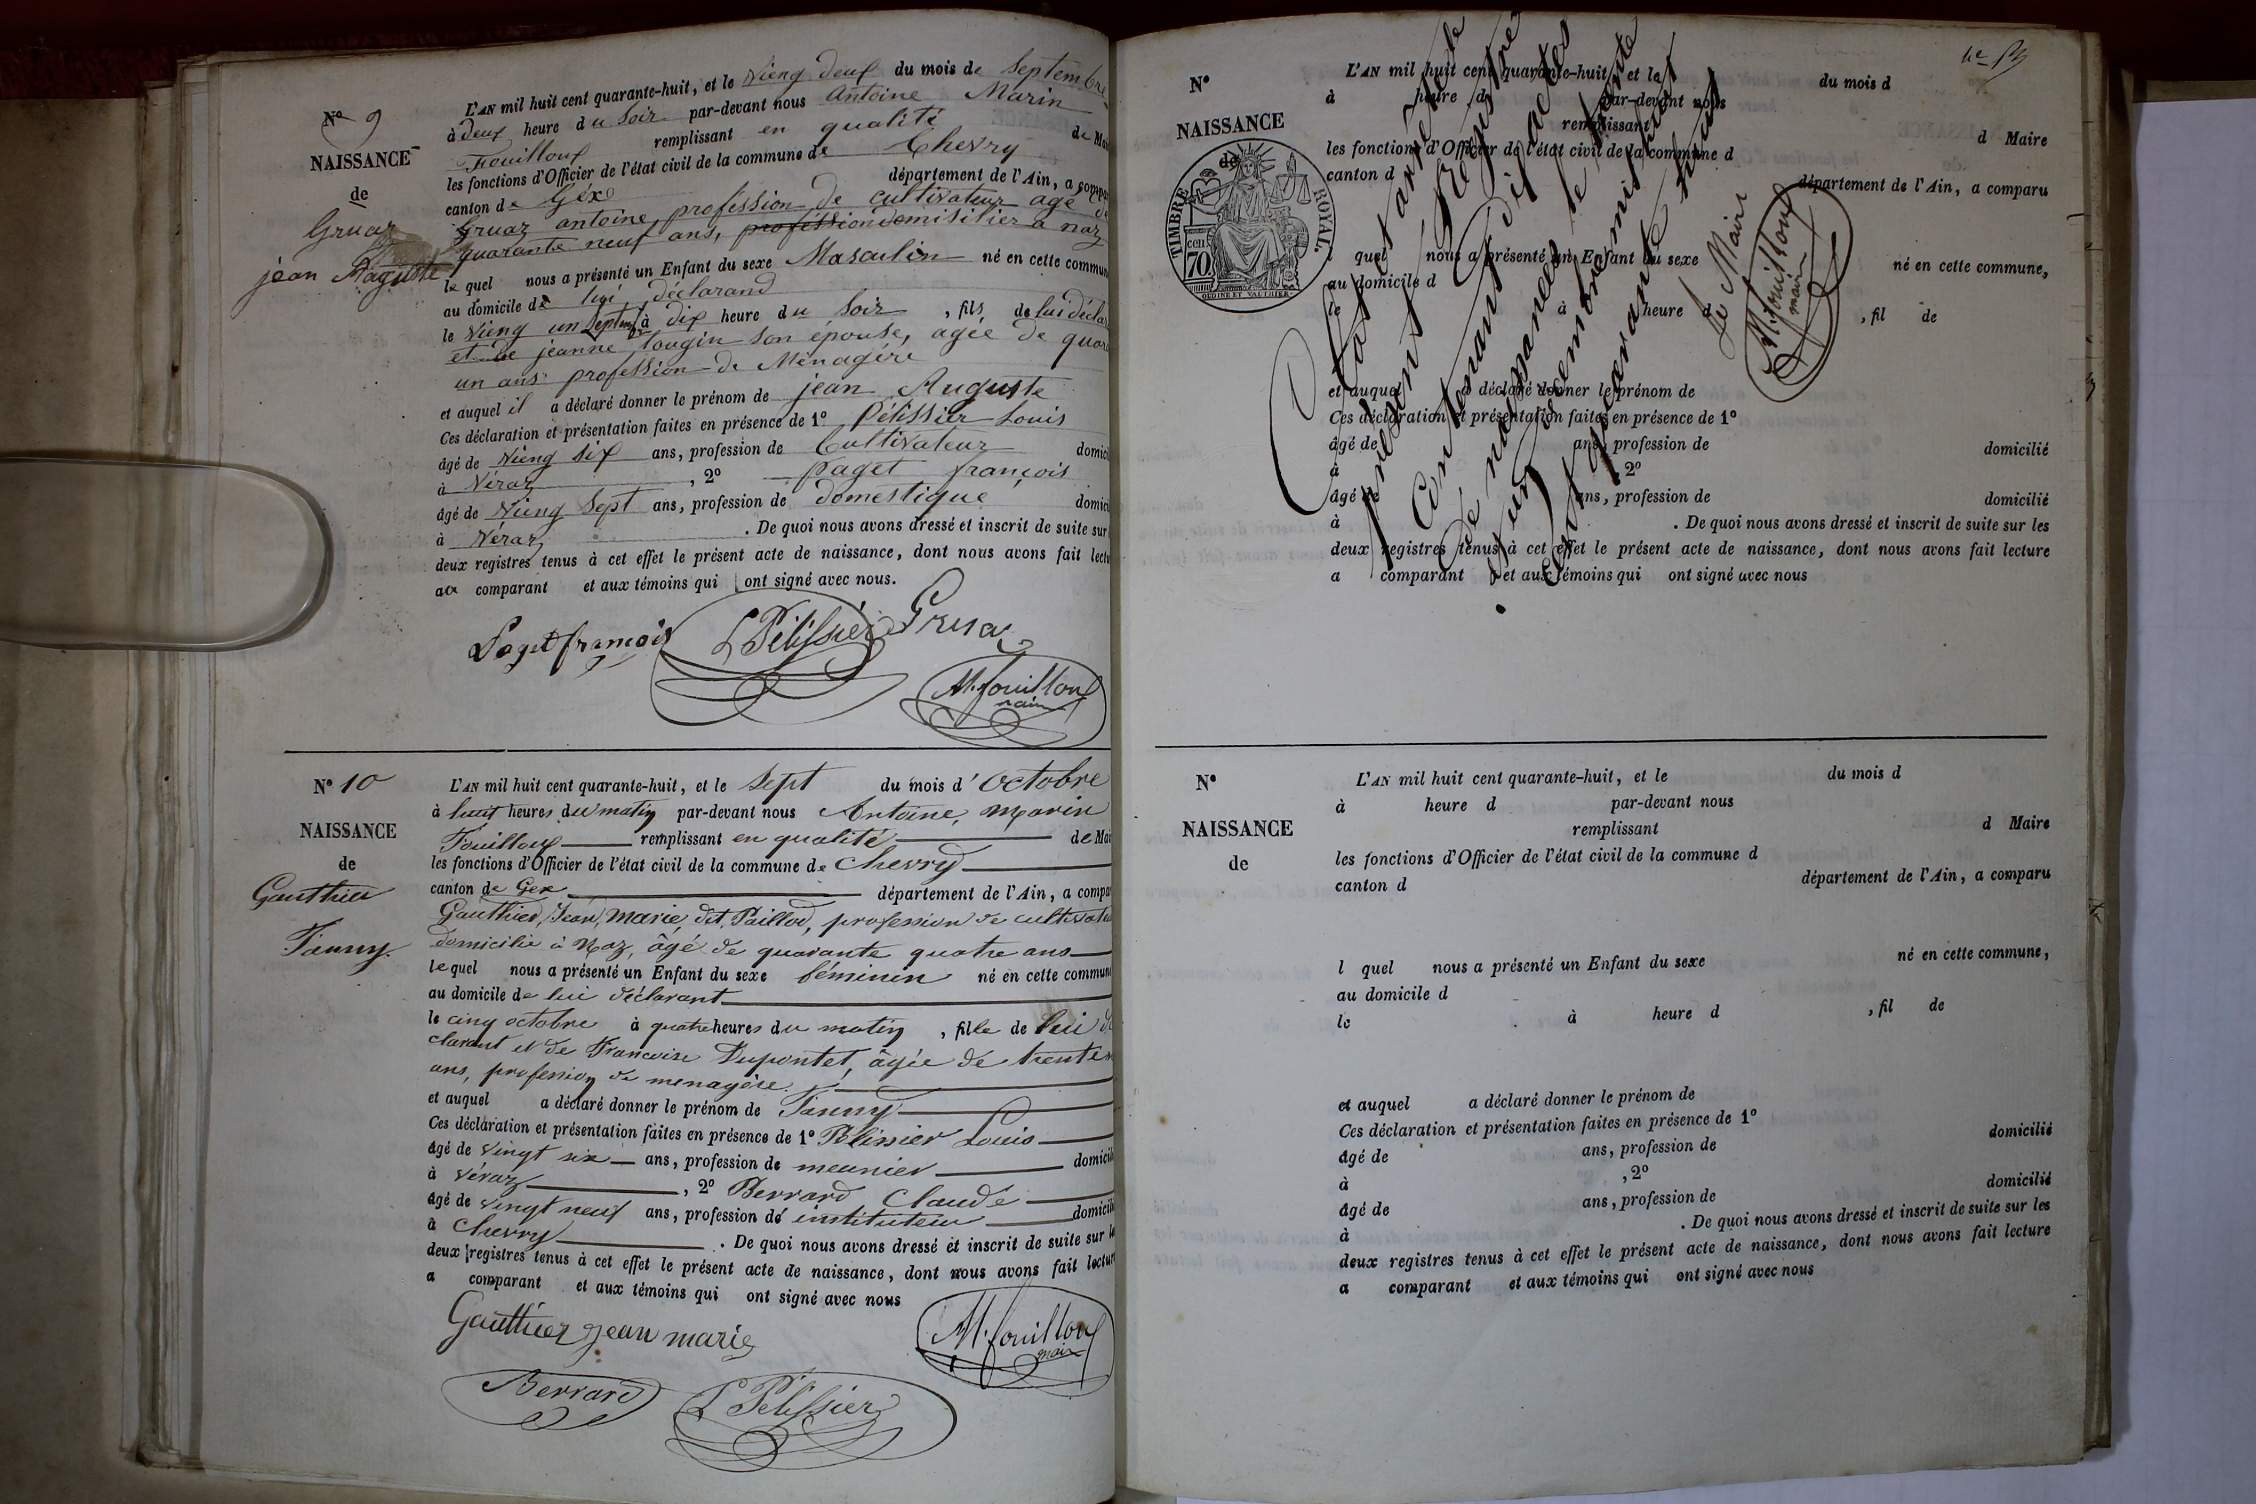 N° 9
NAISSANCE
de
Gruaz
jean Auguste
L'AN mil huit cent quarante-huit, et le vieng deux du mois de Septembre
à deux heure du Soir par-devant nous Antoine Marin
Fouilloux remplissant en qualité de Mai
les fonctions d'Officier de l'état civil de la commune de Chevry
canton de Géx département de l'Ain, a compa
Gruaz antoine, profession de cultivateur agé de
quarante neuf ans, profession domisilier a naz
le quel nous a présenté un Enfant du sexe Masculin né en cette commun
au domicile de lui déclarand
le vieng un Septemb à dix heure du Soir , fils de lui décla
et de jeanne tougin son épouse, agée de quara
un ans profession de Ménagére
et auquel il a déclaré donner le prénom de jean Auguste
Ces déclaration et présentation faites en présence de 1° Pélissier Louis
âgé de vieng six ans, profession de Cultivateur domici
à Véraz , 2° paget françois
âgé de vieng Sept ans, profession de domestique domici
à Véraz . De quoi nous avons dressé et inscrit de suite sur
deux registres tenus à cet effet le présent acte de naissance, dont nous avons fait lectu
au comparant et aux témoins qui ont signé avec nous.
Paget françois L Pélissier Gruaz
M. fouilloux
maire
N° 10
NAISSANCE
de
Gauthier
Fanny.
L'AN mil huit cent quarante-huit, et le Sept du mois d'Octobre
à huit heures du matin par-devant nous Antoine, Marin
Fouilloux remplissant en qualité de Mai
les fonctions d'Officier de l'état civil de la commune de Chevry
canton de Gex département de l'Ain, a compa
Gauthier, Jean, Marie, dit Paillod, profession de cultivate
domicilié à Naz, âgé de quarante quatre ans
le quel nous a présenté un Enfant du sexe féminin né en cette commune
au domicile de lui déclarant
le cinq octobre à quatre heures du matin , fille de lui dé
clarant et de Francoise Dupontet, âgée de trente
ans, profession de menagère.
et auquel a déclaré donner le prénom de Fanny
Ces déclaration et présentation faites en présence de 1° Pelissier Louis
âgé de vingt six ans, profession de meunier domicili
à Véraz , 2° Berrard Claude
âgé de vingt neuf ans, profession de instituteur domicili
à Chevry . De quoi nous avons dressé et inscrit de suite sur le
deux registres tenus à cet effet le présent acte de naissance, dont nous avons fait lecture
a comparant et aux témoins qui ont signé avec nous
Gauthier jean marie
M. fouilloux
maire
Berrard L Pélissier
N°
NAISSANCE
de
TIMBRE ROYAL.
cen
70.
L'AN mil huit cent quarante-huit, et le du mois d
à heure d par-devant nous
remplissant d Maire
les fonctions d'Officier de l'état civil de la commune d
canton d département de l'Ain, a comparu
quel nous a présenté un Enfant du sexe né en cette commune,
au domicile d
le à heure d , fil de
et auquel a déclaré donner le prénom de
Ces déclaration et présentation faites en présence de 1°
âgé de ans, profession de domicilié
à , 2°
âgé de ans, profession de domicilié
à . De quoi nous avons dressé et inscrit de suite sur les
deux registres tenus à cet effet le présent acte de naissance, dont nous avons fait lecture
a comparant et aux témoins qui ont signé avec nous
Clos et arrêté le
présent Registre
Contenant Dix actes
de naissances le trente
et un Décembre mil huit
cent quarante huit
Le Maire
M. fouilloux
maire
N°
NAISSANCE
de
L'AN mil huit cent quarante-huit, et le du mois d
à heure d par-devant nous
remplissant d Maire
les fonctions d'Officier de l'état civil de la commune d
canton d département de l'Ain, a comparu
l quel nous a présenté un Enfant du sexe né en cette commune,
au domicile d
le à heure d , fil de
et auquel a déclaré donner le prénom de
Ces déclaration et présentation faites en présence de 1°
âgé de ans, profession de domicilié
à , 2°
âgé de ans, profession de domicilié
à . De quoi nous avons dressé et inscrit de suite sur les
deux registres tenus à cet effet le présent acte de naissance, dont nous avons fait lecture
a comparant et aux témoins qui ont signé avec nous